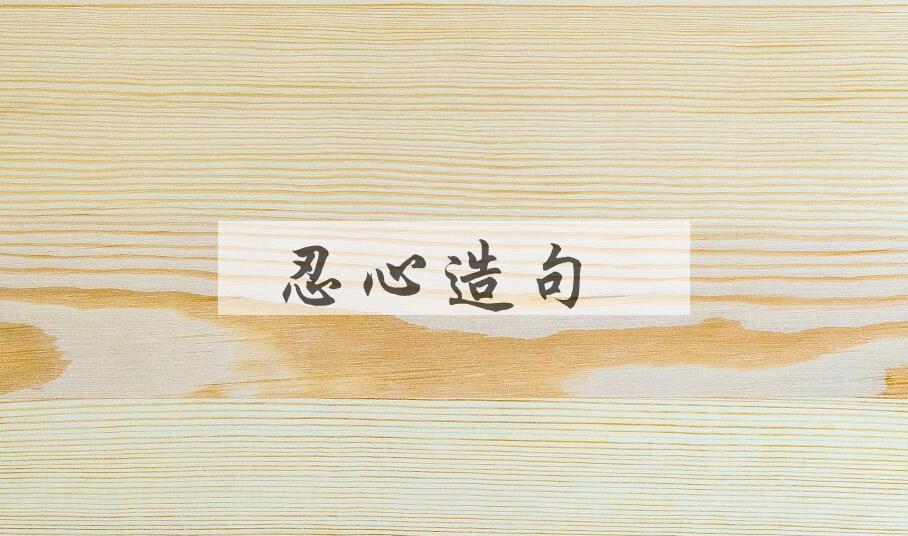 忍心造句